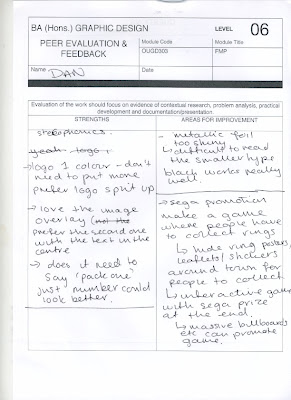 BA (Hons.) GRAPHIC DESIGN
LEVEL 06
PEER EVALUATION &
FEEDBACK
Module Code
OUGD303
Module Title
FMP
Name DAN
Date
Evaluation of the work should focus on evidence of contextual research, problem analysis, practical
development and documentation/presentation.
STRENGTHS
stereophonics.
yeah - logo,
→ logo 1 colour - don't
need to put more
prefer logo split up.
→ love the image
overlay (not the
prefer the second one
with the text in the
centre
→ does it need to
say 'pack one'
just number could
look better.
AREAS FOR IMPROVEMENT
- metallic foil
too shiny
↳ difficult to read
the smaller type
black works really
well.
→ sega promotion
make a game
where people have
to collect rings
↳ hide ring posters,
leaflets/ stickers
around town for
people to collect
↳ interactive game
with sega prize
at the end.
↳ massive billboards
etc can promote
game.